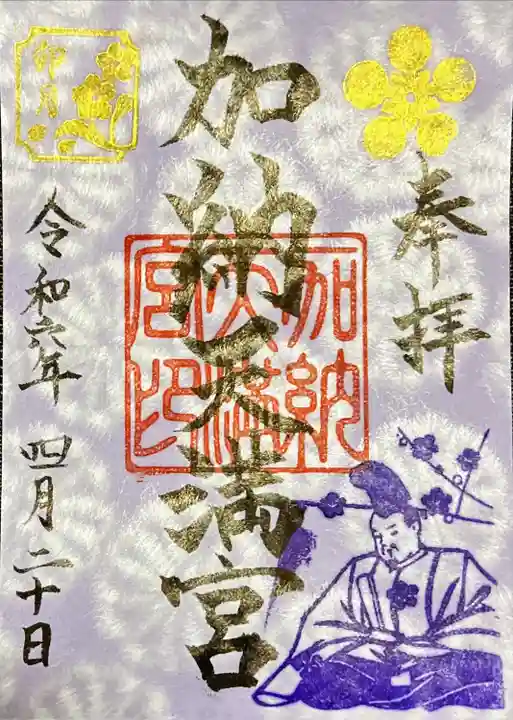 奉拝
加納天満宮
加納天満宮印
卯月
令和六年 四月二十日